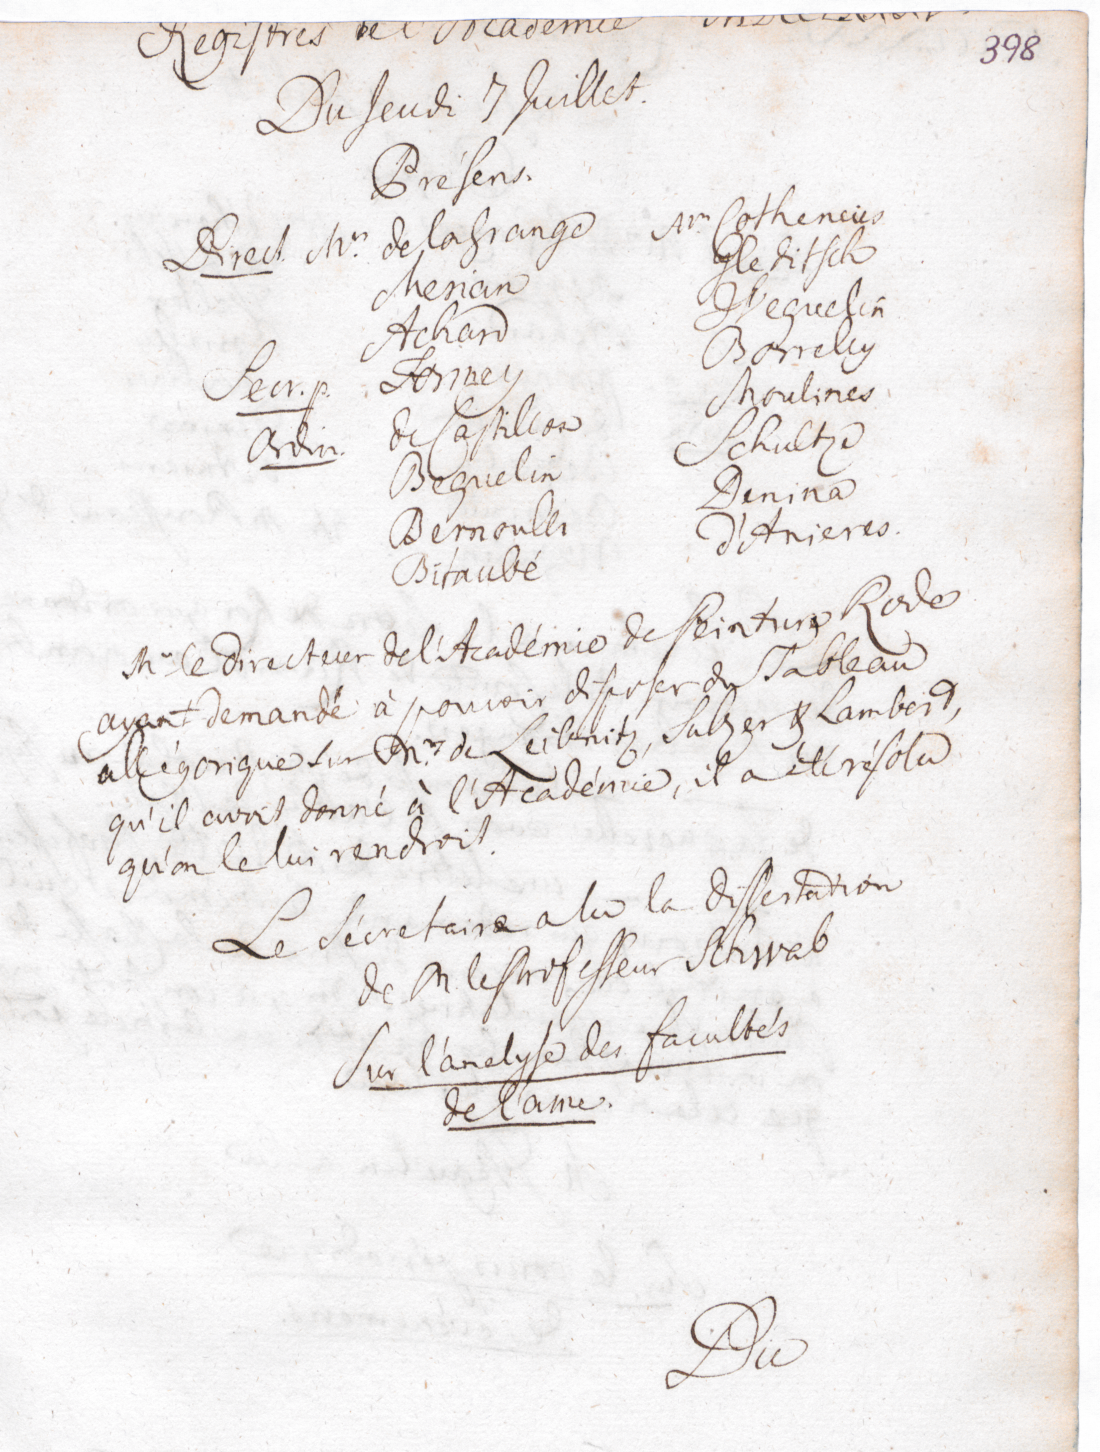 Registres de l'Academie
398
Du Jeudi 7 Juillet.
Présens.
Direct. Mrs. de la Grange Mrs Cothenius
Merian Gleditsch
Achard Weguelin
Secr. p. Formey Borrelly
Ordin. de Castillon Moulines
Beguelin Schultze
Bernoulli Denina
Bitaubé d'Anieres.
Mr le Directeur de l'Académie de Peinture Rode
ayant demandé à pouvoir disposer du Tableau
allégorique sur Mrs de Leibnitz, Sulzer & Lambert,
qu'il avoit donné à l'Académie, il a été résolu
qu'on le lui rendroit.
Le Sécretaire a lu la dissertation
de M le Professeur Schwab
Sur l'analyse des facultés
de l'ame.
Du